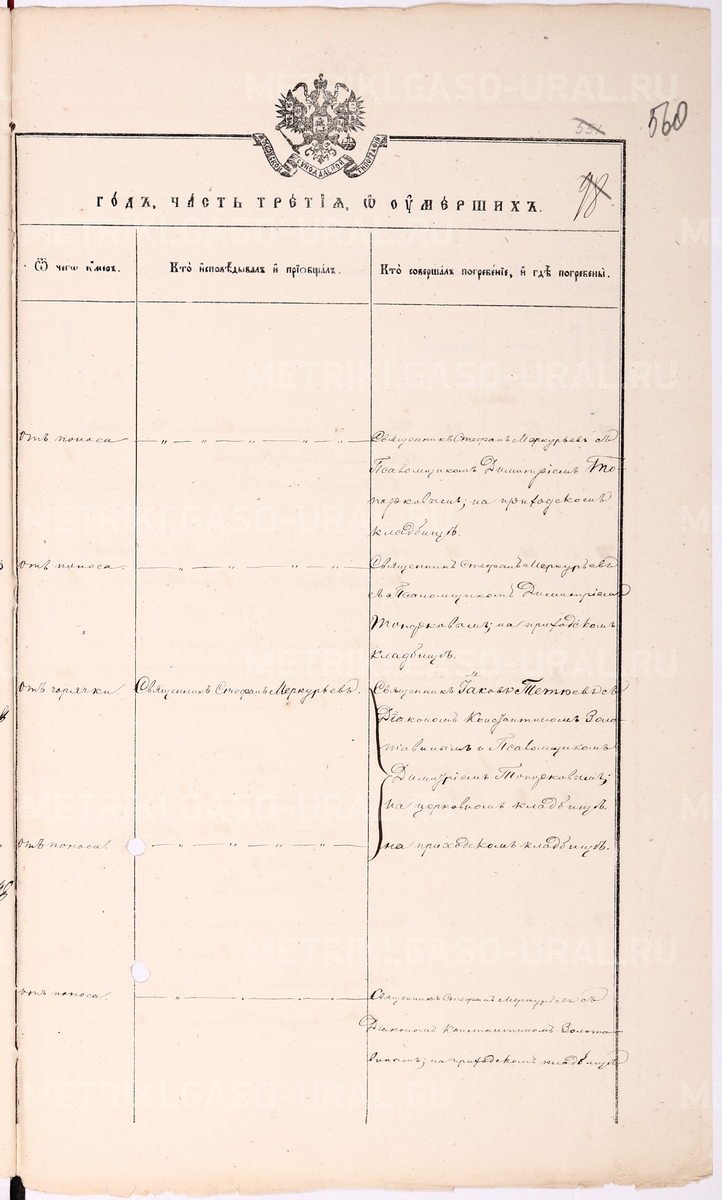 560
551
98
МОСКОВСКОЙ СѴНОДАЛЬНОЙ ТИПОГРАФІИ
ГОДЪ, ЧАСТЬ ТРЕТІѦ, Ѡ ОУМЕРШИХЪ.
Ѿ чегѡ оумеръ.
Кто исповѣдывалъ и пріобщалъ.
Кто совершалъ погребеніе, и гдѣ погребены.
отъ поноса
— „ — „ — „ — „ — „ —
Священникъ Стефанъ Меркурьевъ съ
Псаломщикомъ Димитріемъ То-
порковымъ; на приходскомъ
кладбищѣ.
отъ поноса.
— „ — „ — „ — „ —
Священникъ Стефанъ Меркурьевъ
съ Псаломщикомъ Димитріемъ
Топорковымъ; на приходскомъ
кладбищѣ.
отъ горячки
Священникъ Стефанъ Меркурьевъ.
Священникъ Іаковъ Тетюевъ съ
Діакономъ Константиномъ Золо-
тавинымъ и Псаломщикомъ
Димитріемъ Топорковымъ;
на церковномъ кладбищѣ
отъ поноса.
— „ — „ — „ — „ —
на приходскомъ кладбищѣ.
отъ поноса.
— „ — „ — „ — „ —
Священникъ Стефанъ Меркурьевъ съ
Діакономъ Константиномъ Золота-
винымъ; на приходскомъ кладбищѣ
METRIKI.GASO-URAL.RU